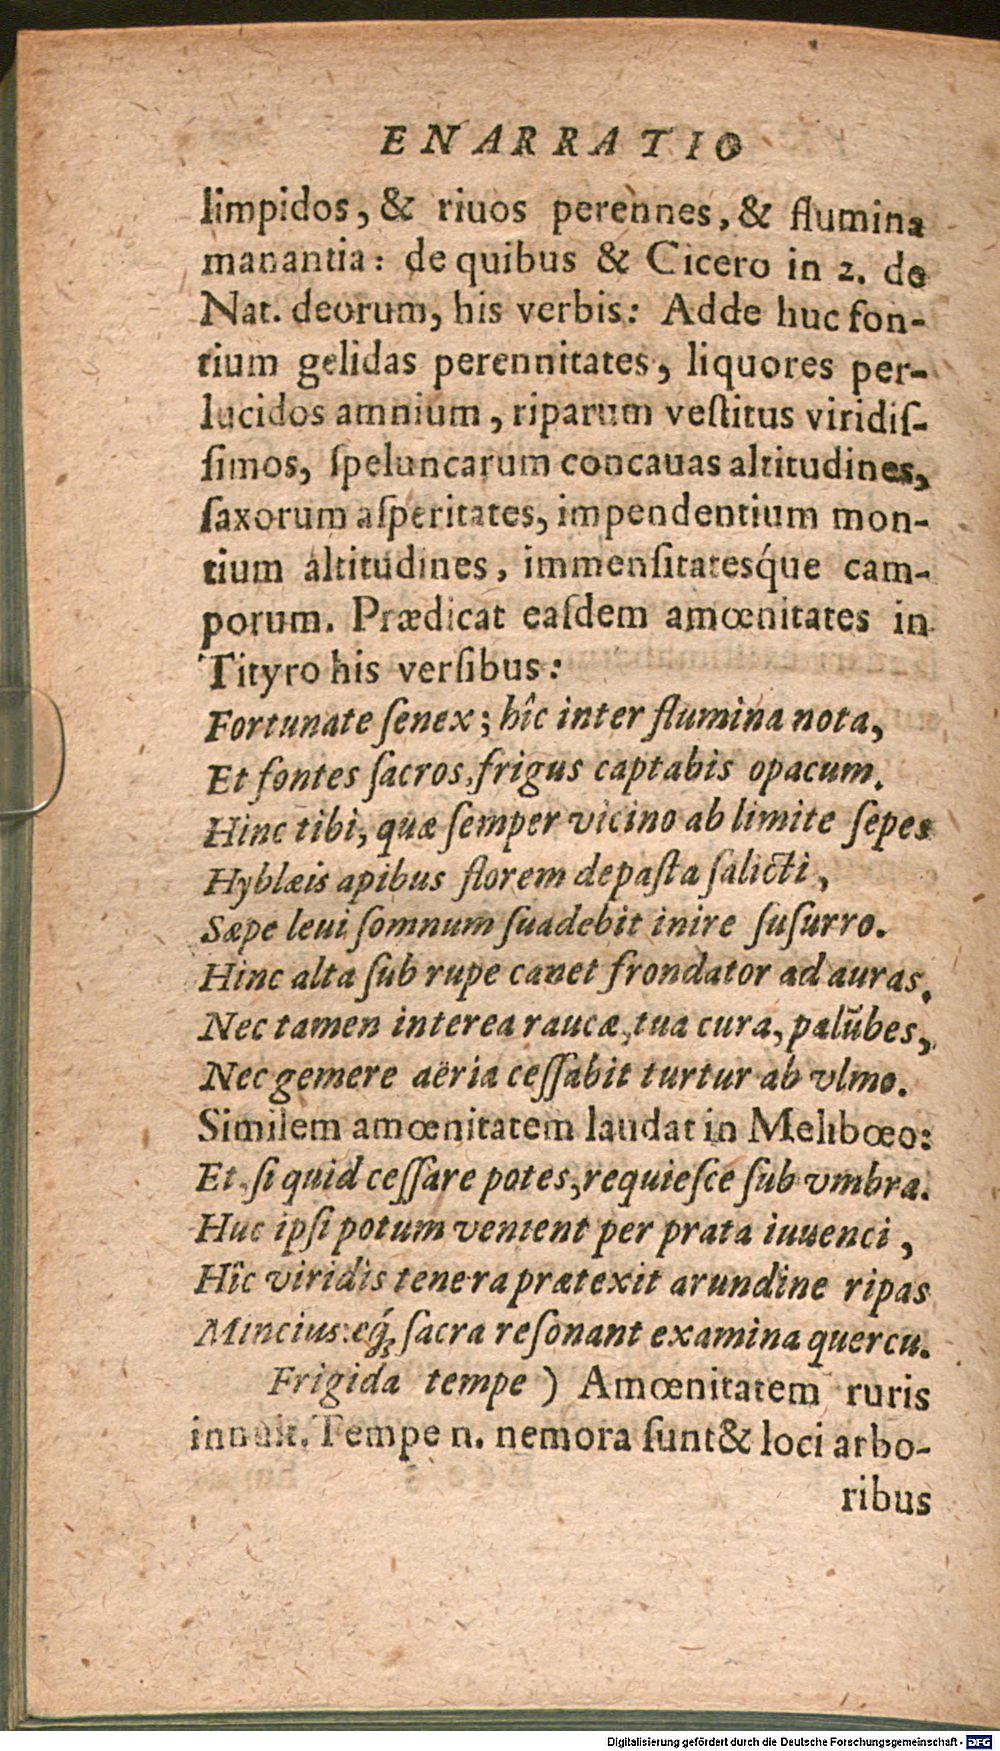 ENARRATIO
limpidos, & riuos perennes, & flumina
manantia: de quibus & Cicero in 2. de
Nat. deorum, his verbis: Adde huc fon-
tium gelidas perennitates, liquores per-
lucidos amnium, riparum veſtitus viridiſ-
ſimos, ſpeluncarum concauas altitudines,
ſaxorum aſperitates, impendentium mon-
tium altitudines, immenſitatesq́ue cam-
porum. Prædicat eaſdem amœnitates in
Tityro his verſibus:
Fortunate ſenex; hîc inter flumina nota,
Et fontes ſacros, frigus captabis opacum.
Hinc tibi, quæ ſemper vicino ab limite ſepes
Hyblæis apibus florem depaſta ſalicti,
Sæpe leui ſomnum ſuadebit inire ſuſurro.
Hinc alta ſub rupe canet frondator ad auras.
Nec tamen interea raucæ, tua cura, palūbes,
Nec gemere aëria ceſſabit turtur ab vlmo.
Similem amœnitatem laudat in Melibœo:
Et, ſi quid ceſſare potes, requieſce ſub vmbra.
Huc ipſi potum venient per prata iuuenci,
Hîc viridis tenera prætexit arundine ripas
Mincius: eq́; ſacra reſonant examina quercu.
Frigida tempe) Amœnitatem ruris
innuit. Tempe n. nemora ſunt & loci arbo-
ribus
Digitalisierung gefördert durch die Deutsche Forschungsgemeinschaft - DFG